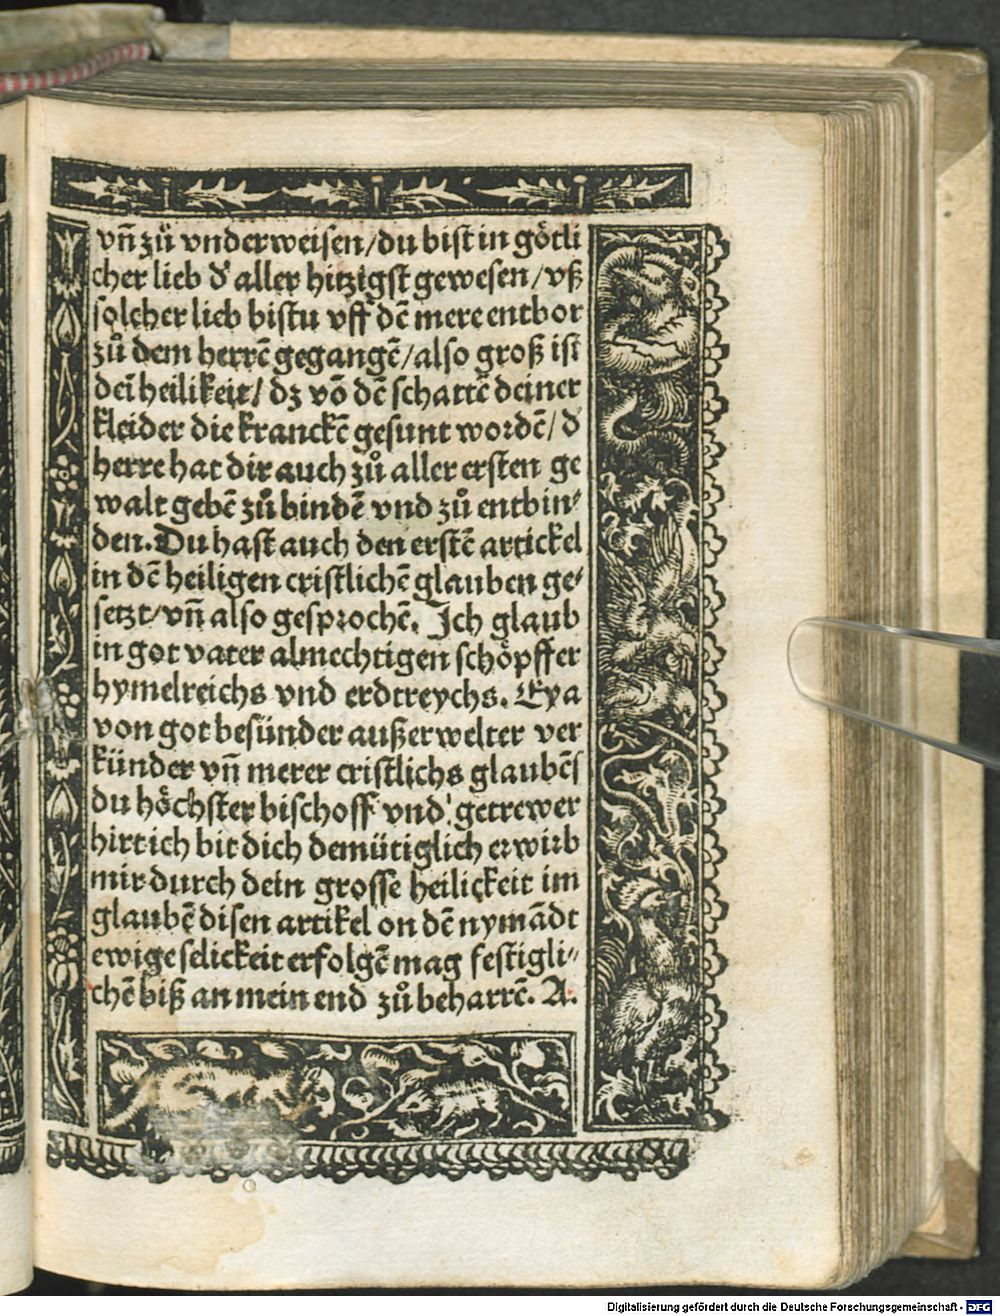 vn̄ zü vnderweisen/du bist in götli
cher lieb d' aller hitzigst gewesen/vß
solcher lieb bistu vff dē mere entbor
zů dem herrē gegangē/also groß ist
dein̄ heilikeit/ dz vō dē schattē deiner
kleider die kranckē gesunt wordē/ d'
herre hat dir auch zů aller ersten ge
walt gebē zů bindē vnd zů entbin⸗
den. Du hast auch den erstē artickel
in dē heiligen cristlichē glauben ge⸗
setzt/vn̄ also gesprochē. Ich glaub
in got vater almechtigen schöpffer
hymelreichs vnd erdtreychs. Eya
von got besünder außerwelter ver
künder vn̄ merer cristlichs glaubēs
du höchster bischoff vnd getrewer
hirt ich bit dich demütiglich erwirb
mir durch dein grosse heilickeit im
glaubē disen artikel on dē nymādt
ewige selickeit erfolgē mag festigli⸗
chē biß an mein end zů beharrē. A.
Digitalisierung gefördert durch die Deutsche Forschungsgemeinschaft - DFG